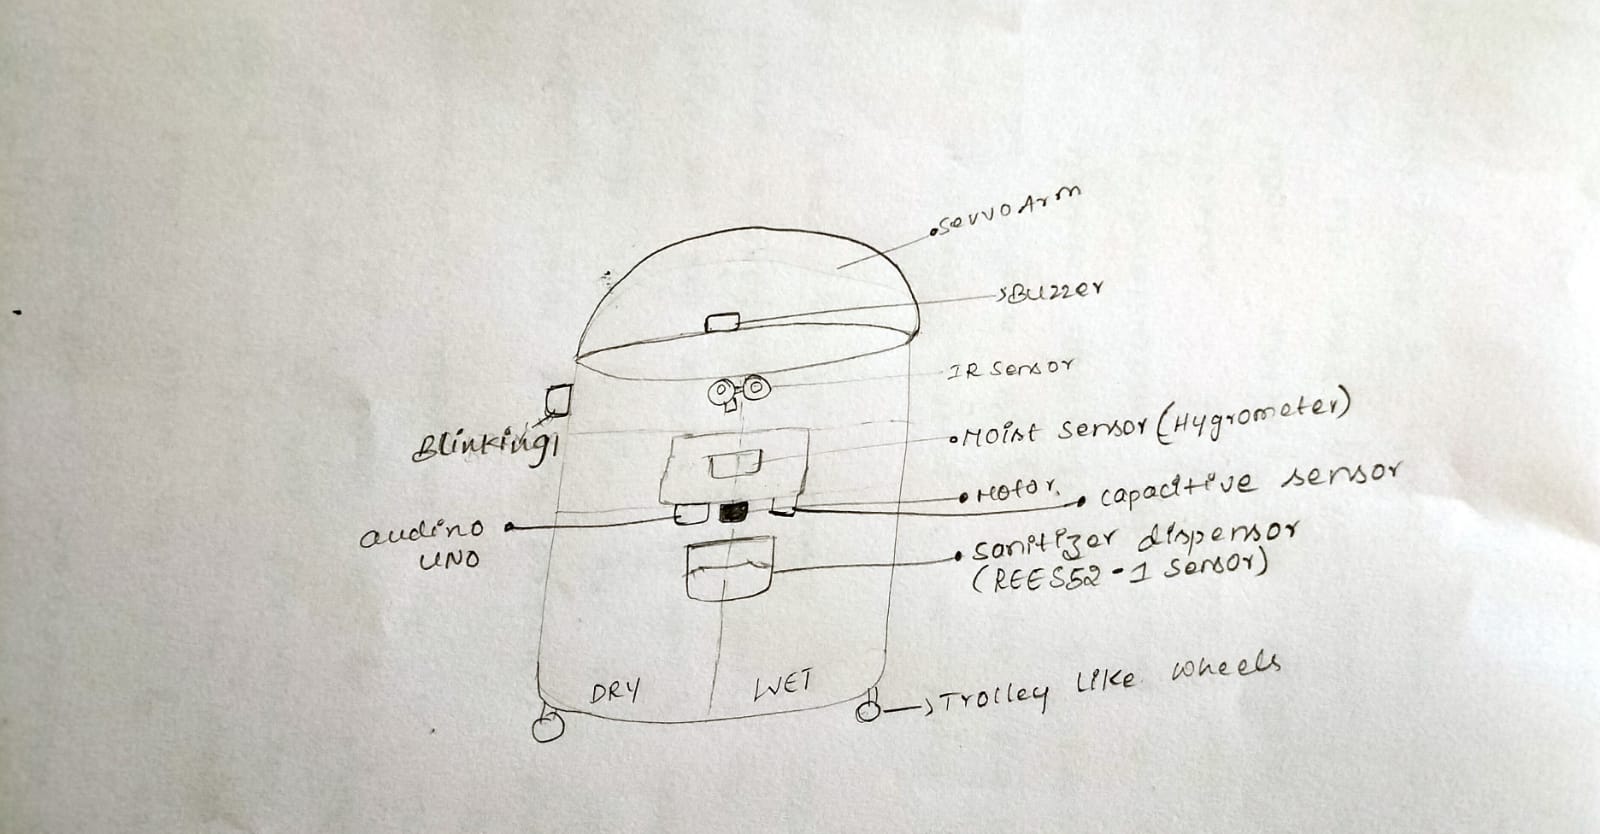 Servo Arm
Buzzer
IR Sensor
Moist Sensor (Hygrometer)
Motor.
capacitive sensor
Blinking
audino
UNO
Sanitizer dispensor
(REES52-1 Sensor)
DRY
WET
Trolley Like Wheels